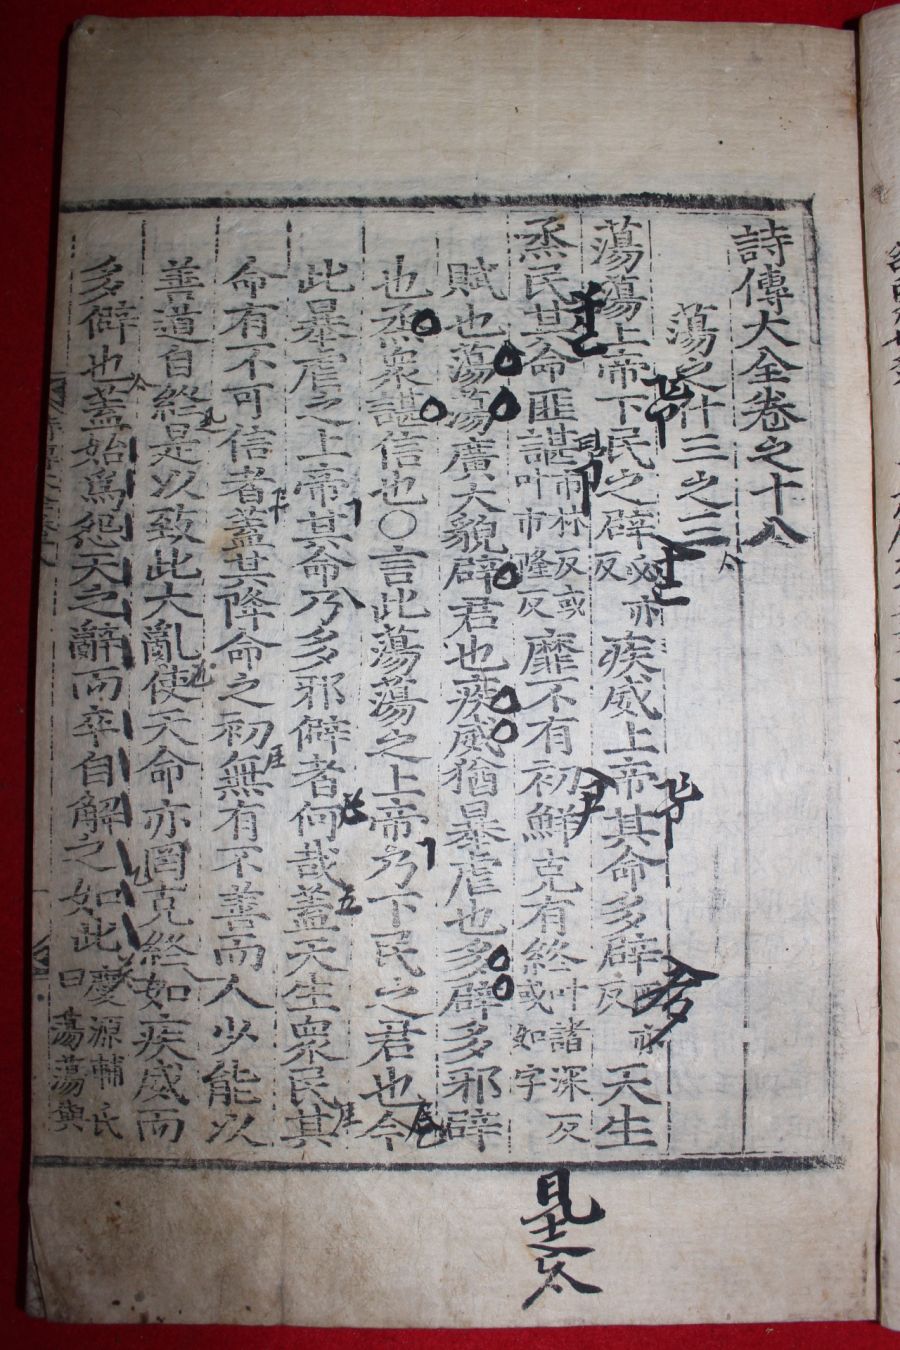 詩傳大全卷之十八
蕩之什三之三
蕩蕩上帝下民之辟必亦反疾威上帝其命多辟匹亦反天生
烝民其命匪諶市林反或叶市隆反靡不有初鮮克有終叶諸深反或如字
賦也蕩蕩廣大貌辟君也疾威猶暴虐也多辟多邪辟
也烝衆諶信也○言此蕩蕩之上帝乃下民之君也今
此暴虐之上帝其命乃多邪僻者何哉蓋天生衆民其
命有不可信者蓋其降命之初無有不善而人少能以
善道自終是以致此大亂使天命亦罔克終如疾威而
多僻也蓋始爲怨天之辭而卒自解之如此慶源輔氏曰蕩蕩與